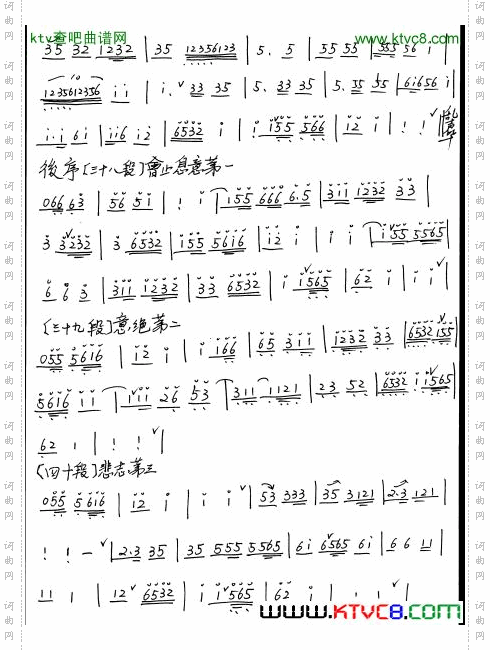 ktv查吧曲谱网 www.ktvc8.com
35 32 1232 | 35 12356123 | 5. 5 | 55 55 | 555 56 i |
1235612356 i i | i. 33 35 | 5. 33 35 | 5. 55 55 | 61656 i |
i.i 6i | ii6 i2 | 6532 i | i55 566 | i2 i | ! ! |
後序〔三十八段〕會止息意第一
066 63 | 56 5i | ! i | i55 666 6.5 | 3ii i232 33 |
3 3232 | 3 6532 | i55 56i6 | i2 i | i i | i55 5565 |
6 6 3 | 3ii i232 | 33 6532 | i i565 | 62 i | i i |
〔三十九段〕意绝第二
055 56i6 | i2 i | i i66 | 65 3ii | i232 33 | 6532 i55 |
56i6 ii | iii 26 53 | 3ii ii2i | 23 52 | 6532 i i565 |
62 i | ! ! |
〔四十段〕悲志第三
055 56i6 | i2 i | i i | 53 333 | 35 3121 | 2.3 121 |
! ! – | 2.3 35 | 35 555 5565 | 6i 6565 6i | 66 11 |
11 1 | 12 6532 | i i565 | 62 i | . . |
WWW.KTVC8.COM
词曲网